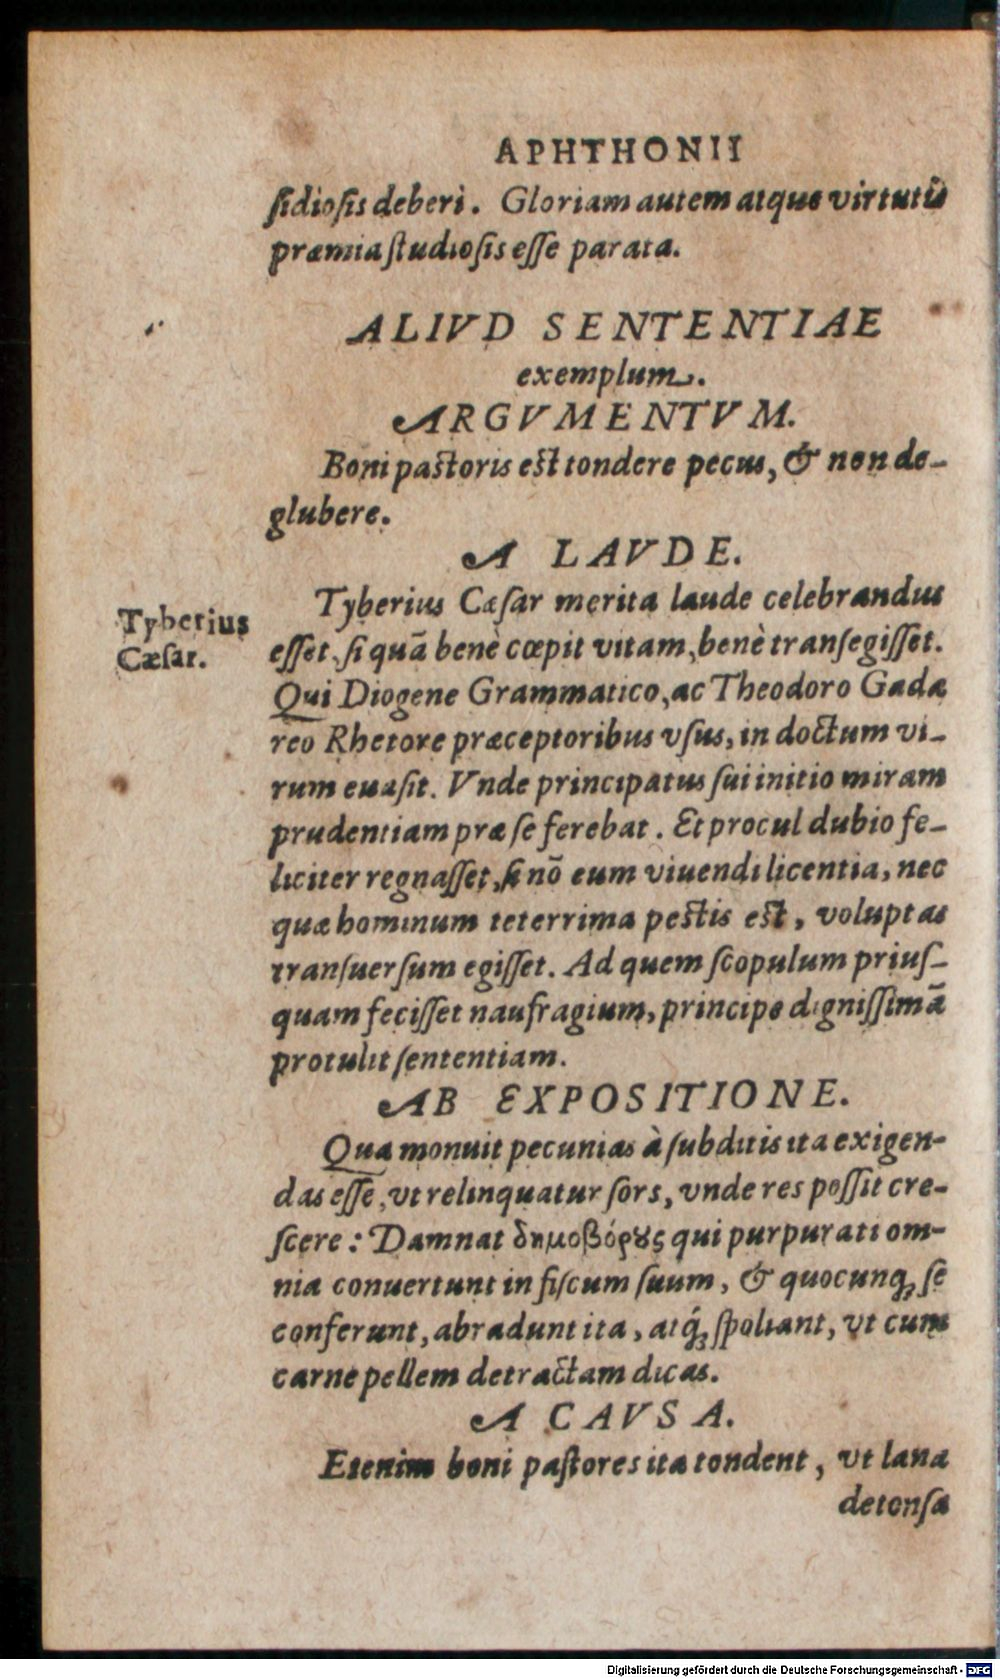 APHTHONII
ſidioſis deberi. Gloriam autem atque virtutũ
præmia ſtudioſis eſſe parata.
ALIVD SENTENTIAE
exemplum.
ARGVMENTVM.
Boni paſtoris eſt tondere pecus, & non de-
glubere.
A LAVDE.
Tyberius Cæſar merita laude celebrandus
Tyberius
Cæſar.
eſſet, ſi quã benè cœpit vitam, benè tranſegiſſet.
Qui Diogene Grammatico, ac Theodoro Gada
reo Rhetore præceptoribus vſus, in doctum vi-
rum euaſit. Vnde principatus ſui initio miram
prudentiam præ ſe ferebat. Et procul dubio fe-
liciter regnaſſet, ſi nõ eum viuendi licentia, nec
quæ hominum teterrima peſtis eſt, voluptas
tranſuerſum egiſſet. Ad quem ſcopulum priuſ-
quam feciſſet naufragium, principe digniſſimã
protulit ſententiam.
AB EXPOSITIONE.
Qua monuit pecunias à ſubditis ita exigen-
das eſſe, vt relinquatur ſors, vnde res poſſit cre-
ſcere: Damnat δημοβόρȣς qui purpurati om-
nia conuertunt in fiſcum ſuum, & quocunq; ſe
conferunt, abradunt ita, atq́; ſpoliant, vt cum
carne pellem detractam dicas.
A CAVSA.
Etenim boni paſtores ita tondent, vt lana
detonſa
Digitalisierung gefördert durch die Deutsche Forschungsgemeinschaft - DFG